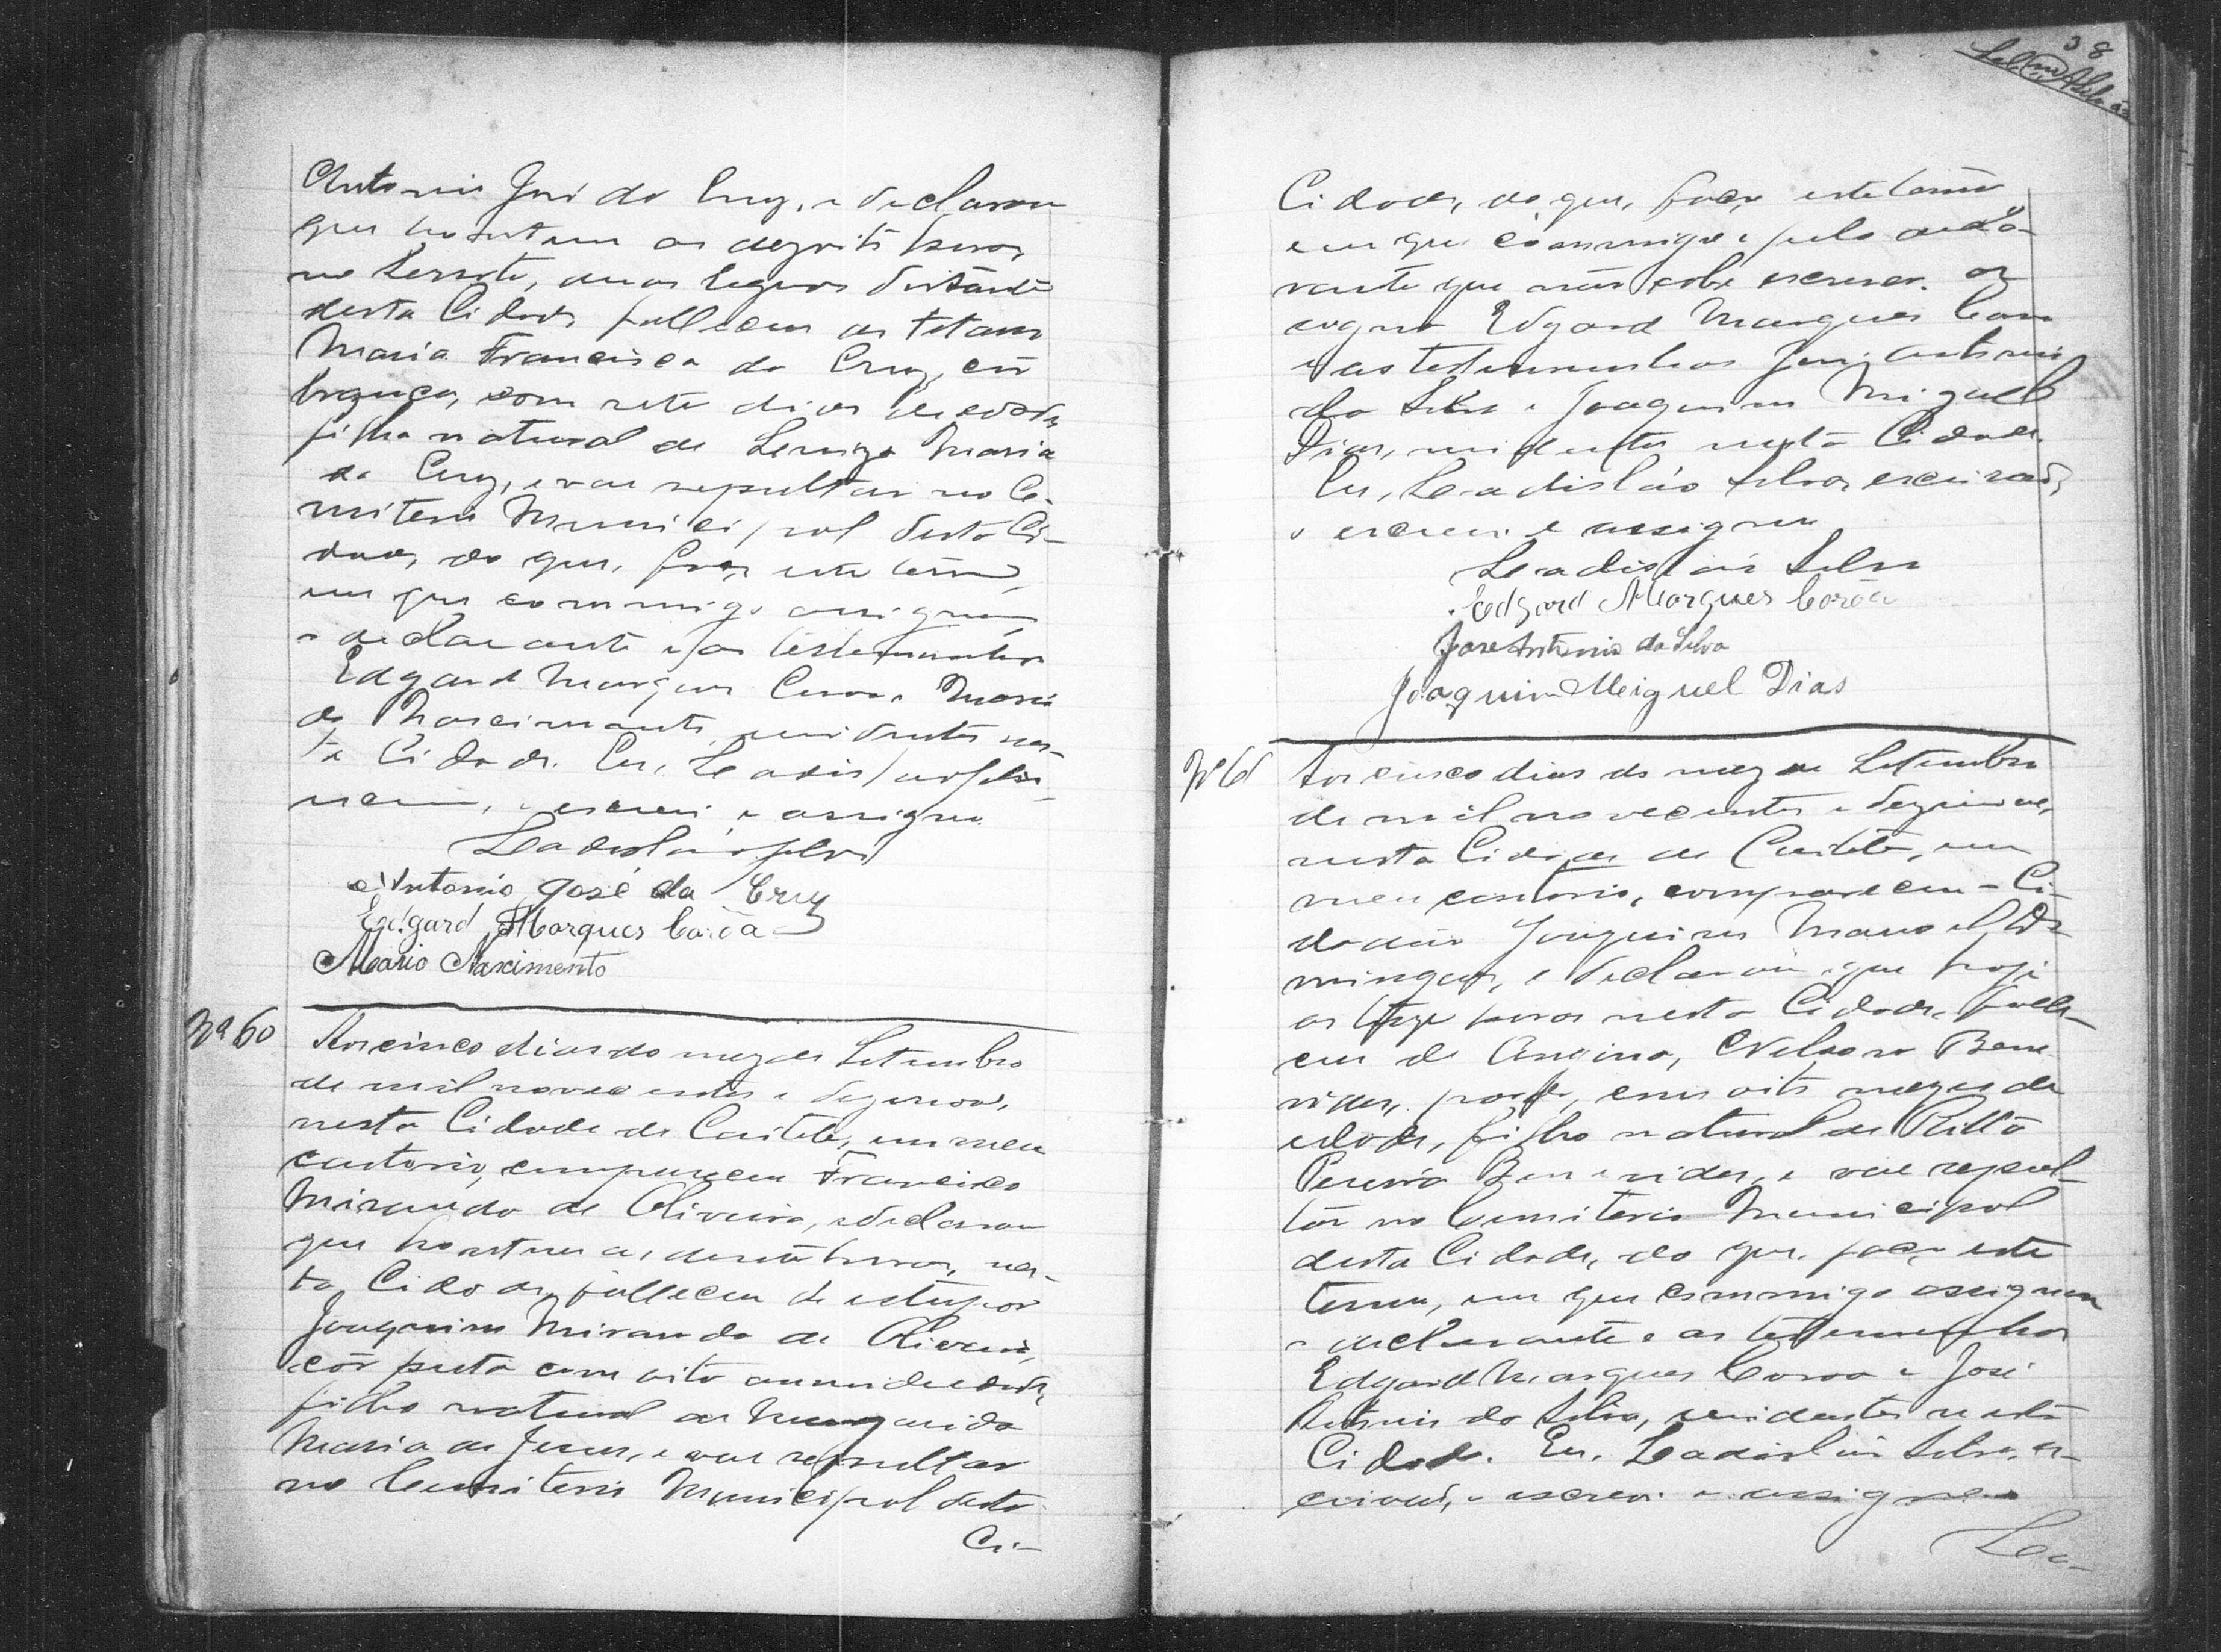 Antonio José da Cruz, e declarou
que hontem as dezoito horas
no Serrote, duas leguas distante
desta Cidade, falleceu de tetano
Maria Francisca da Cruz, côr
branca, com sete dias de edade,
filha natural de Maria
da Cruz, e vae sepultar no Ce-
miterio Municipal desta Ci-
dade, do que, faço este termo,
em que commigo assignam
o declarante e as testemunhas
Edgard Marques Coroa e Mario
do Nascimento, residentes nes-
ta Cidade. Eu, Leadisláo Silva
escrivão, o escrevi e assigno.
Leadisláo Silva
Antonio José da Cruz
Edgard Marques Corôa
Mario Nascimento
Nº 60
Aos cinco dias do mez de Setembro
de mil novecentos e dezenove,
nesta Cidade de Caiteté, em meu
cartorio, compareceu Francisco
Miranda de Oliveira, e declarou
que hontem as horas, nes-
ta Cidade, falleceu de estupor
Joaquim Miranda de Oliveira,
côr preta com oito annos de edade,
filho natural de Margarida
Maria de Jesus, e vae sepultar
no Cemiterio Municipal desta
Ci-
38
Cidade, do que, faço este termo
em que commigo e pelo decla-
rante que não sabe escrever. a
rogno Edgard Marques Coroa
e as testemunhas José Antonio
da Silva e Joaquim Miguel
Dias, residentes nesta Cidade.
Eu, Leadisláo Silva, escrivão,
o escrevi e assigno
Leadisláo Silva
Edgard Marques Corôa
Jose Antonio da Silva
Joaquim Meiguel Dias
Nº 61
Aos cinco dias do mez de Setembro
de mil novecentos e dezenove,
nesta Cidade de Caiteté, em
meu cartorio, compareceu o Ci-
dadão Joaquim Manoel Do-
mingues, e declarou que hoje
as treze horas nesta Cidade, falle-
ceu de Angina, Nelson Bene
vides, pardo, com oito mezes de
edade, filho natural de Ritta
Pereira Benevides, e vae sepul-
tar no Cemiterio Municipal
desta Cidade, do que, faço este
termo, em que commigo assignam
o declarante e as testemunhas
Edgard Marques Coroa e José
Antonio da Silva, residentes nesta
Cidade. Eu, Leadisláo Silva, es-
crivão, o escrevi e assigno
Lea-